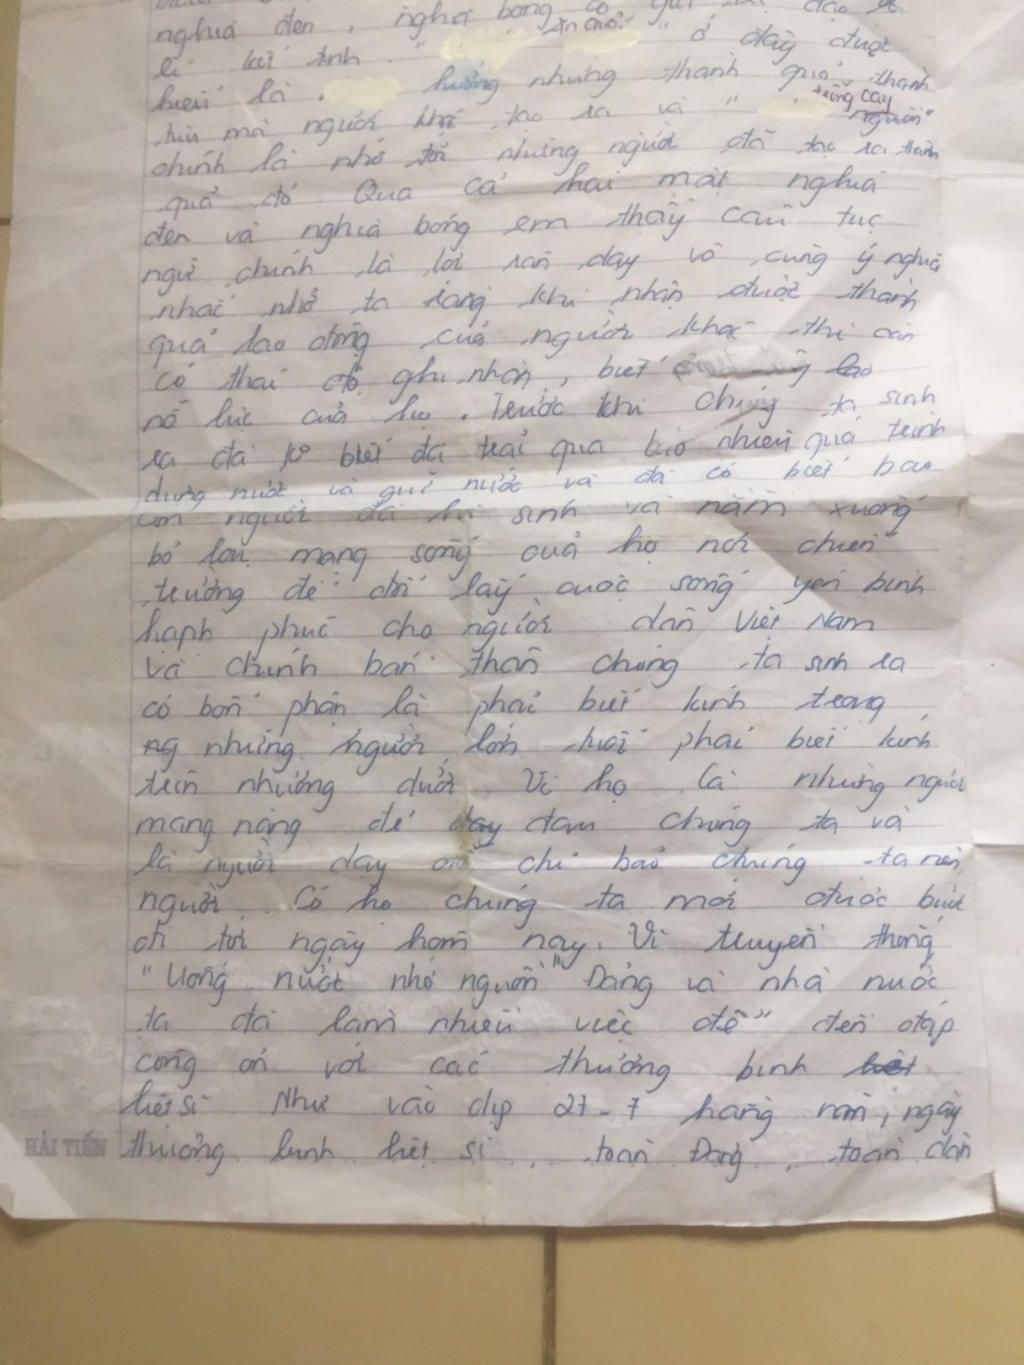 nghĩa đen, nghĩa bóng có gửi
lí kết tinh. " ăn quả " ở đây được
hiểu là hưởng những thành quả thành
tựu mà người khác tạo ra và " trồng cây
người "
chính là nhớ tới những người đã tạo ra thành
quả đó. Qua cả hai mặt nghĩa
đen và nghĩa bóng em thấy câu tục
ngữ chính là lời răn dạy vô cùng ý nghĩa
nhắc nhở ta rằng khi nhận được thành
quả lao động của người khác thì cần
có thái độ ghi nhận, biết
nỗ lực của họ. Trước khi chúng ta sinh
ra đã ko biết đã trải qua bao nhiêu quá trình
dựng nước và giữ nước và đã có biết bao
con người đã hi sinh và nằm xuống
bỏ lại mạng sống của họ nơi chiến
trường để đổi lấy cuộc sống yên bình
hạnh phúc cho người dân Việt Nam
và chính bản thân chúng ta sinh ra
có bổn phận là phải biết kính trọng
ng những người lớn tuổi phải biết kính
trên nhường dưới. Vì họ là những người
mang nặng đẻ đau chúng ta và
là người dạy chỉ bảo chúng ta nên
người. Có họ chúng ta mới được bước
đi tới ngày hôm nay. Vì truyền thống
"Uống nước nhớ nguồn" Đảng và nhà nước
ta đã làm nhiều việc để" đền đáp
công ơn với các thương binh
liệt sĩ Như vào dịp 27-7 hằng năm, ngày
HẢI TIẾN thương binh liệt sĩ, toàn Đảng, toàn dân